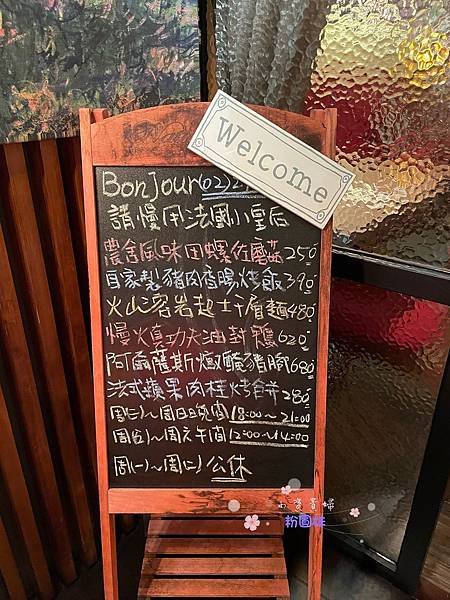 Welcome
Bonjour (02)2
請慢用法國小皇后
農舍風味田螺佐蘑菇 250
自家製豬肉香腸烤飯 390
火山溶岩起士千層麵 480
慢火真功夫油封鴨 620
阿爾薩斯燉醃豬腳 680
法式蘋果肉桂烤餅 280
周(三)~周日晚間 18:00~21:00
周(五)~周六午間 12:00~14:00
周(一)~周(二) 公休
粉圓妹